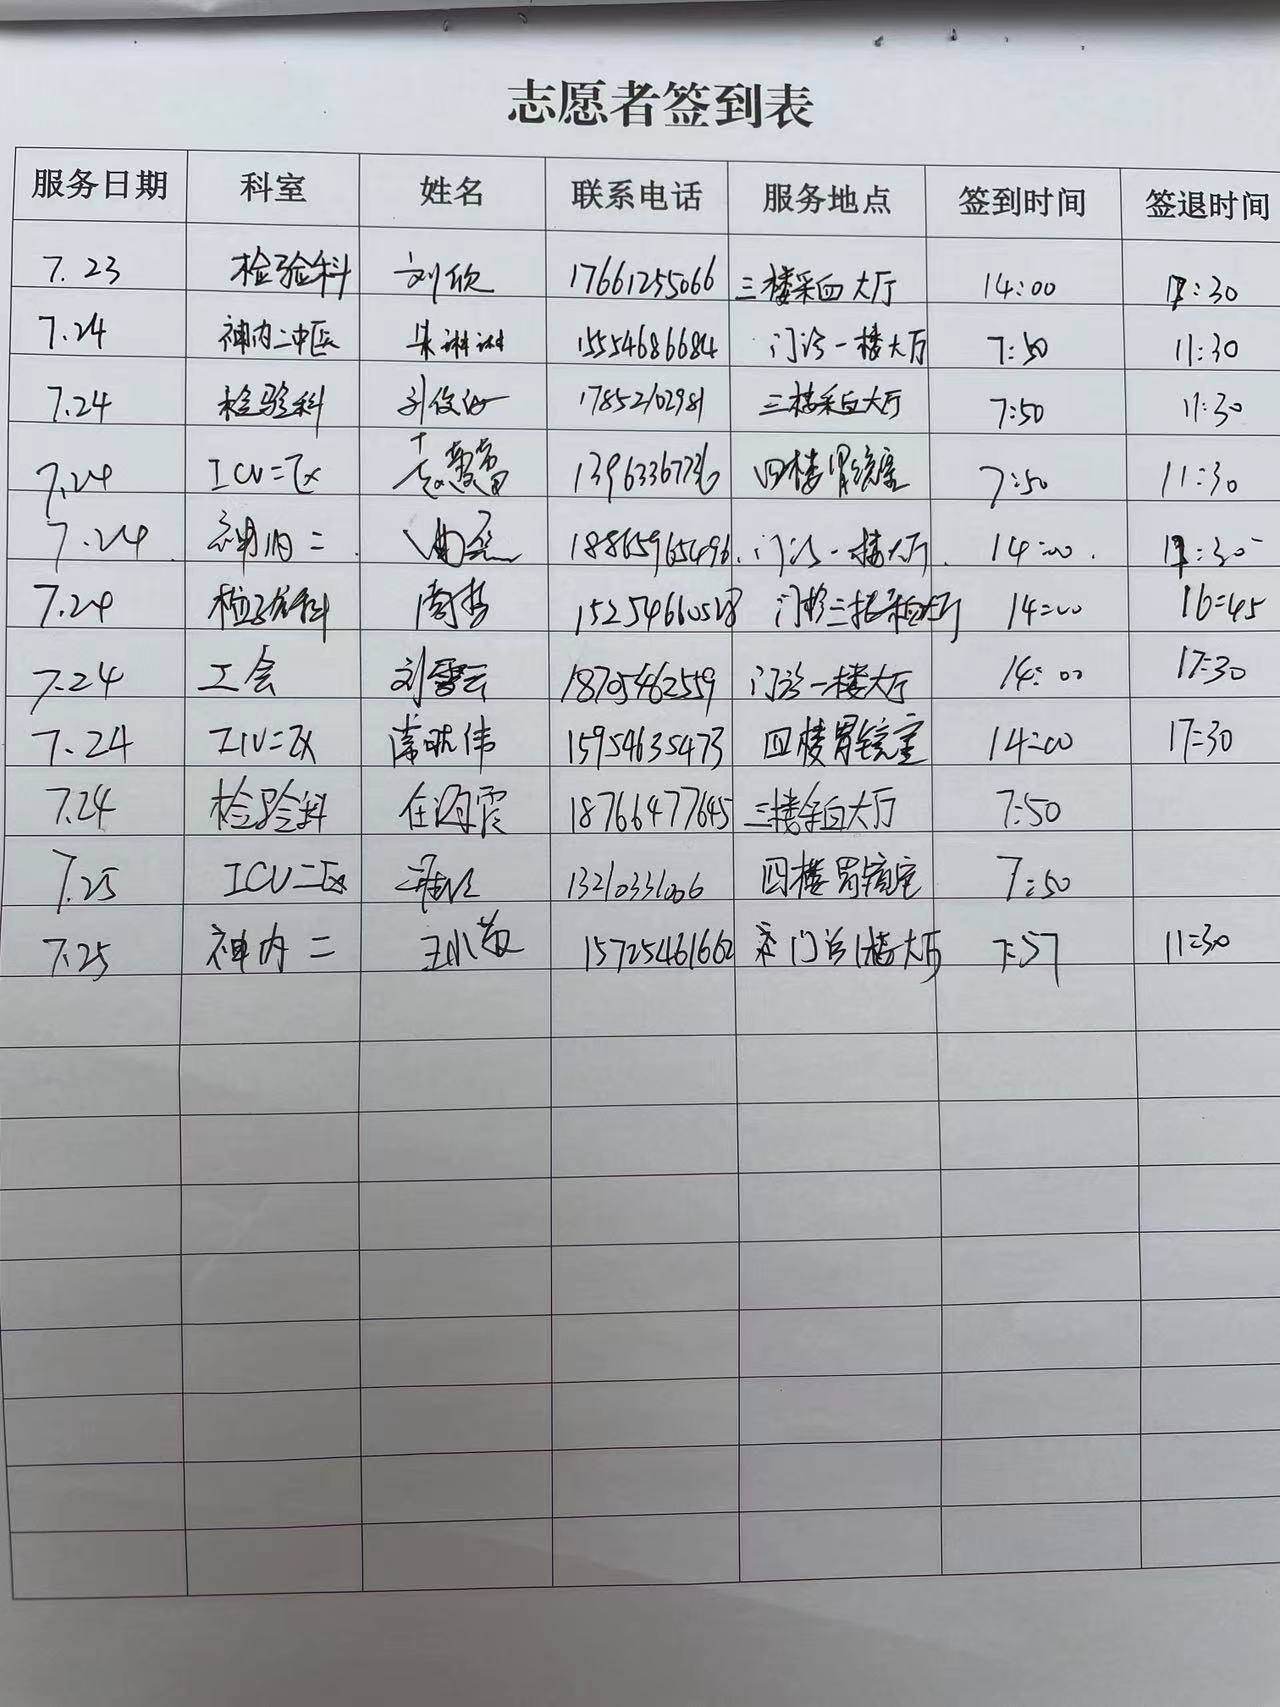 志愿者签到表
服务日期 科室 姓名 联系电话 服务地点 签到时间 签退时间
7.23 检验科 刘欣 17661255066 三楼采血大厅 14:00 17:30
7.24 神内二中医 朱琳琳 15554686684 门诊一楼大厅 7:50 11:30
7.24 检验科 17852102981 三楼采血大厅 7:50 11:30
7.24 ICU二区 13963367736 四楼胃镜室 7:50 11:30
7.24 神内二 18865965496 门诊一楼大厅 14:00 17:30
7.24 检验科 门诊三楼采血大厅 14:00 16:45
7.24 工会 刘雪云 18705462559 门诊一楼大厅 14:00 17:30
7.24 ICU二区 15954635473 四楼胃镜室 14:00 17:30
7.24 检验科 任海霞 18766477645 三楼采血大厅 7:50
7.25 ICU二区 13210331006 四楼胃镜室 7:50
7.25 神内二 15725461662 门诊1楼大厅 7:57 11:30